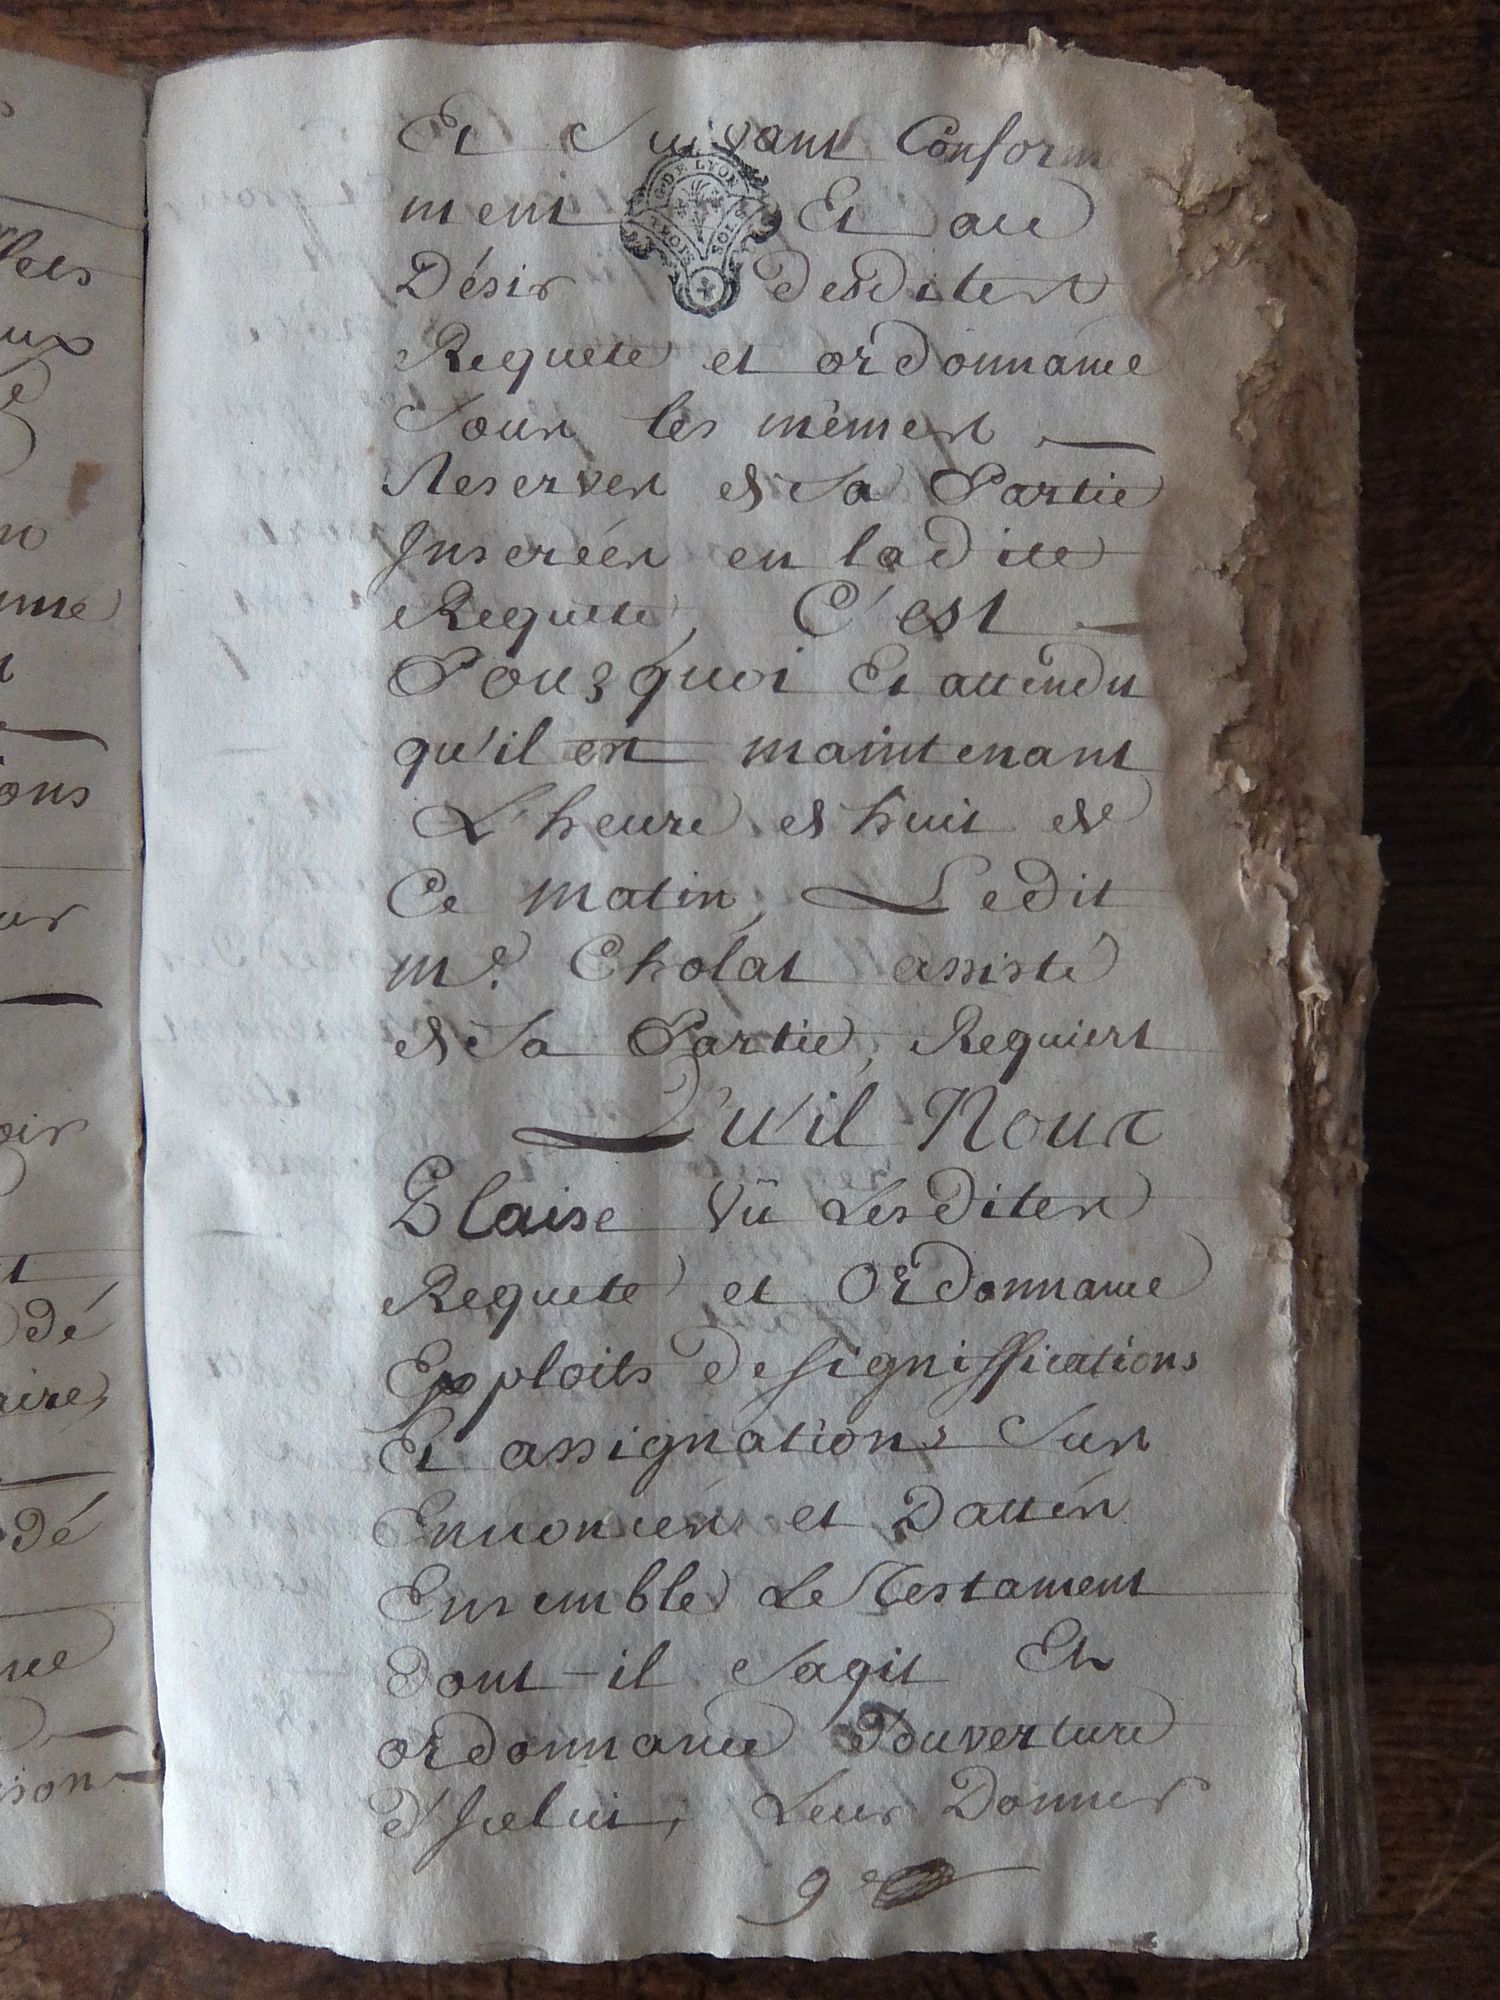 Et Suivant Conform
ment Et au
G. DE LYON
Désir desdites
Requete et ordonnance
Sous les mêmes
Reserves de sa Partie
Inserées en ladite
Requete, C'est
Pourquoi Et attendu
qu'il est maintenant
L'heure de huit de
Ce matin, Ledit
me. Cholat assisté
de sa Partie, Requiert
Qu'il Nous
Plaise Vû Lesdites
Requete et Ordonnance
Exploits de signiffications
Et assignations Sus
Ennoncés et Dattés
Ensemble Le Testament
Dont-il Sagit Et
ordonnance d'ouverture
d'Icelui, Leur Donner
9e